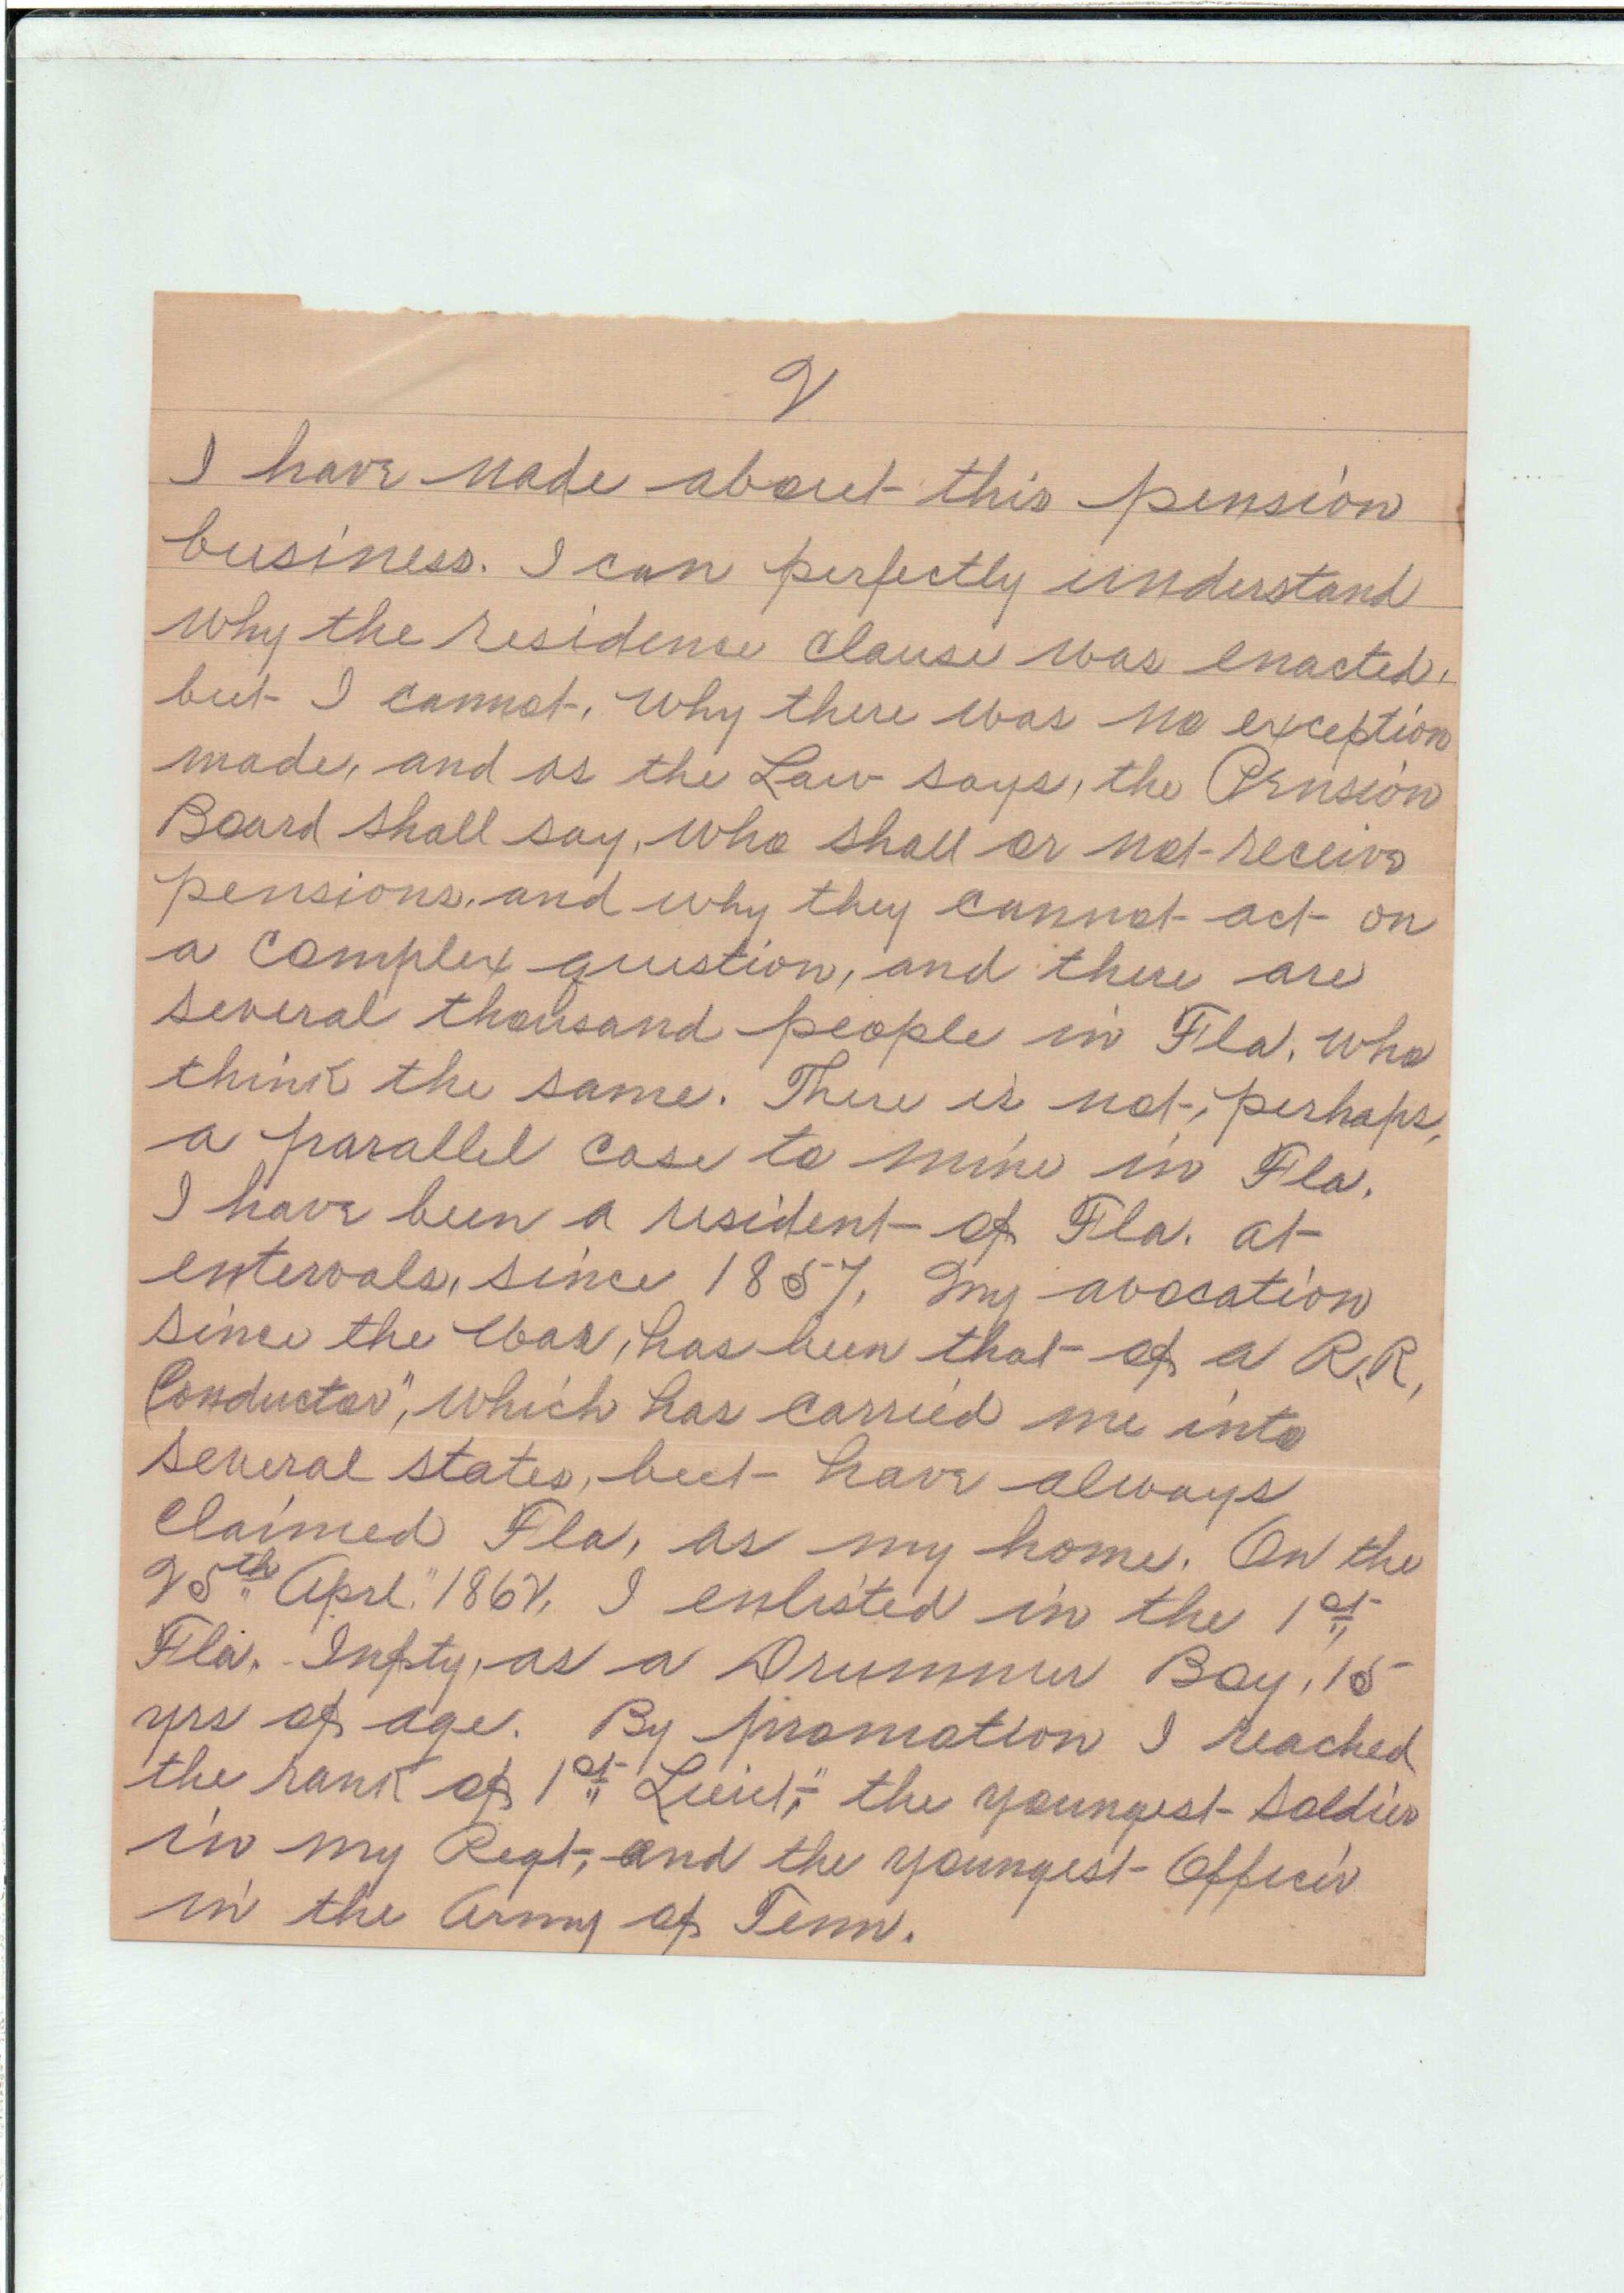 2
I have made about this pension
business. I can perfectly understand
why the residence clause was enacted,
but I cannot, why there was no exception
made, and as the Law says, the Pension
Board shall say, who shall or not receive
pensions, and why they cannot act on
a complex question, and there are
several thousand people in Fla. who
think the same. There is not, perhaps,
a parallel case to mine in Fla.
I have been a resident of Fla. at
entervals, since 1857, My avocation
since the War, has been that of a R.R,
Conductor", which has carried me into
several states, but have always
claimed Fla, as my home. On the
25th Aprl." 1862, I enlisted in the 1st
Fla. Infty, as a Drummer Boy, 15
yrs of age. By promotion I reached
the rank of 1st Lieut," the youngest soldier
in my Regt, and the youngest Officer
in the Army of Tenn.